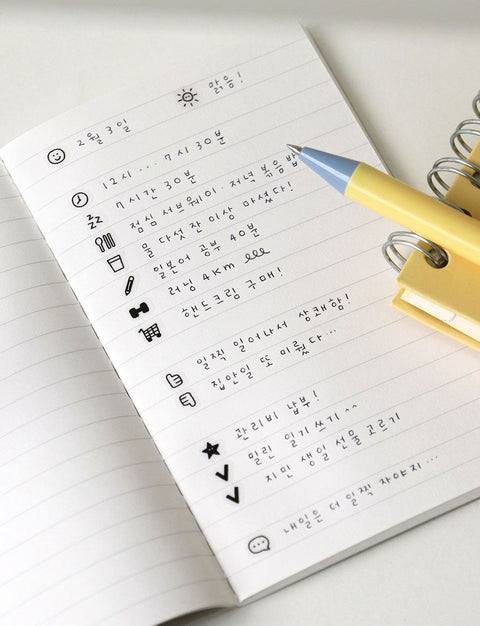 2월 3일 맑음!
12시 ... 7시 30분
7시간 30분
점심 서브웨이. 저녁 볶음밥
물 다섯 잔 이상 마셨다!
일본어 공부 40분
러닝 4km
핸드크림 구매!
일찍 일어나서 상쾌함!
집안일 또 미뤘다...
관리비 납부!
밀린 일기 쓰기 ^^
지민 생일 선물 고르기
내일은 더 일찍 자야지...